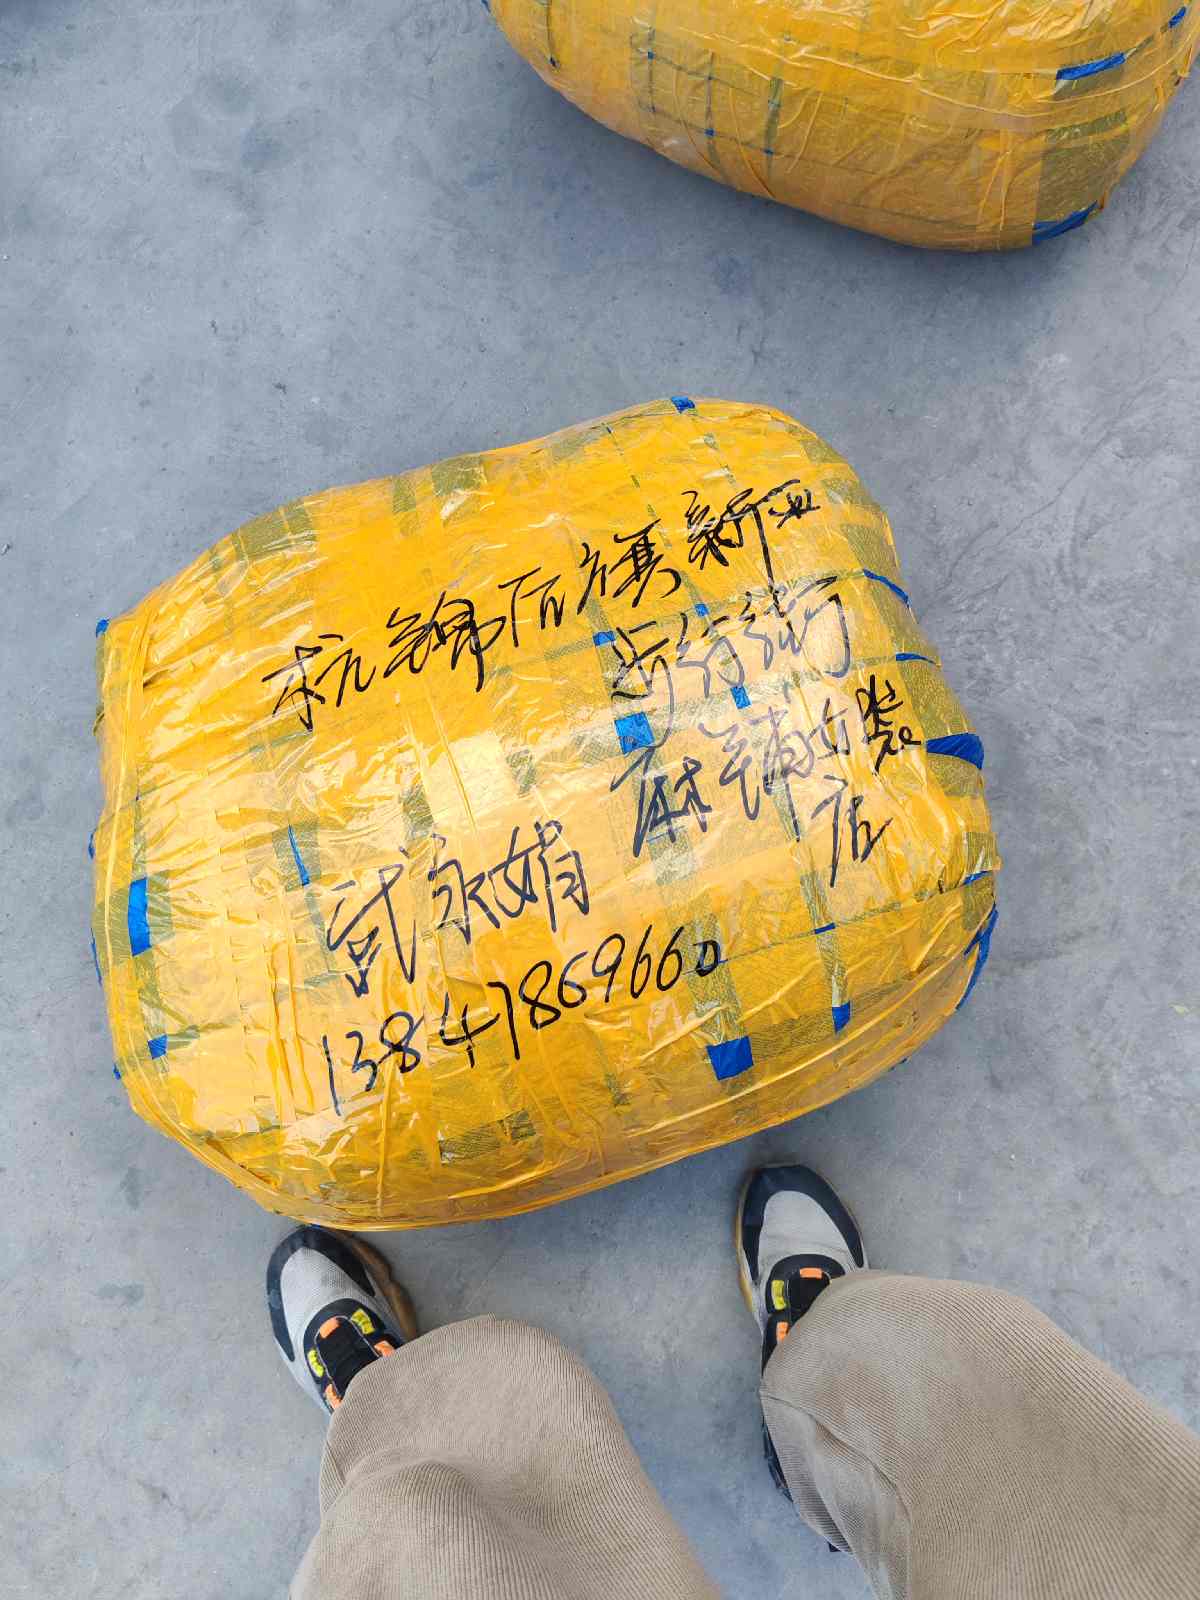 杭锦后旗新亚
步行街
麻铺女装
店
武永娟
13847869660